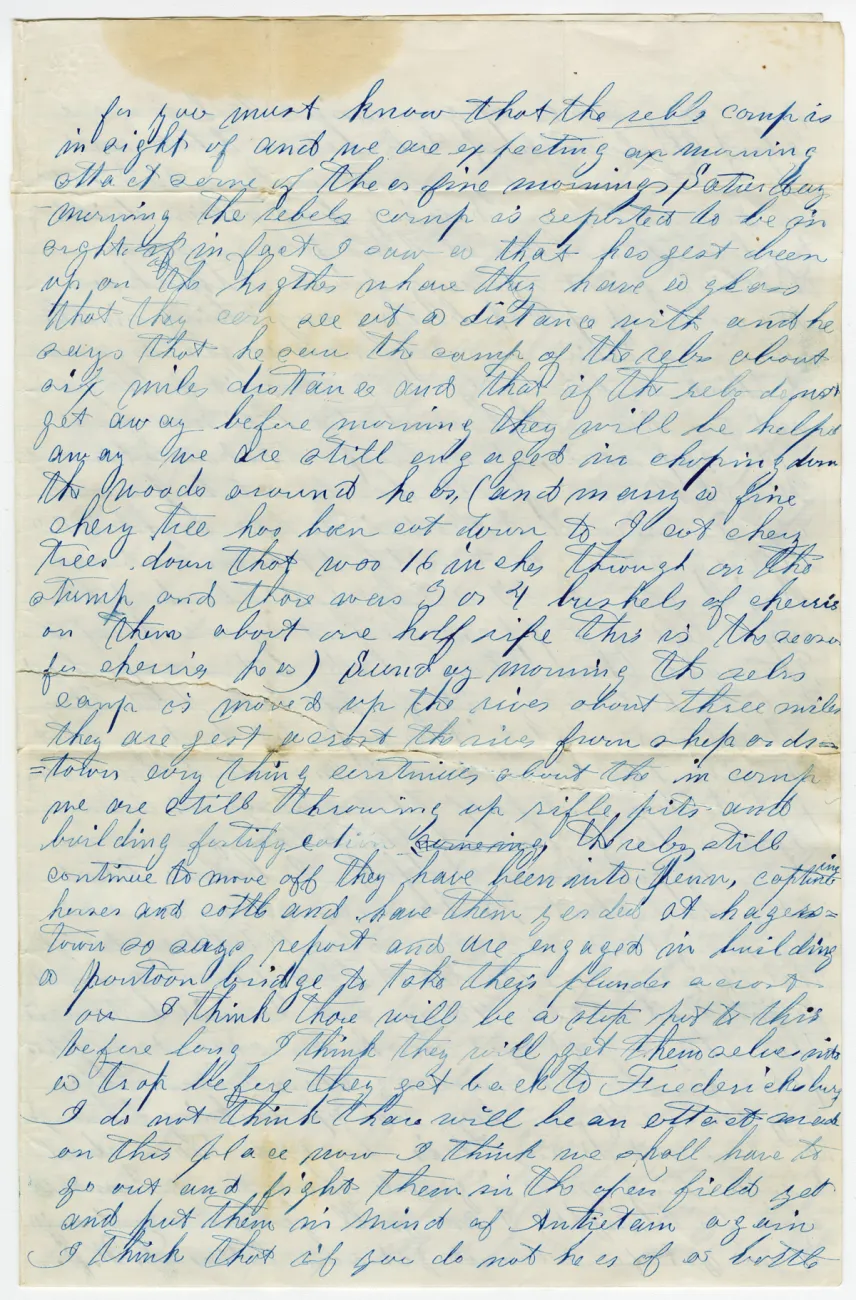 for you must know that the rebbs camp is
in sight of and we are expecting an morning
attact some of thees fine mornings Saturday
morning the rebels camp is reported to be in
sight of in fact I saw a that has gest been
up on the hights where they have a glass
that they can see at a distance with and he
says that he saw the camp of the rebs about
six miles distance and that if the rebs dont
get away before morning they will be helpd
away we are still engaged in choping down
the woods around hear (and many a fine
chery tree has been cut down to I cut chery
trees down that was 16 inches through on the
stump and thare was 3 or 4 bushels of cheries
on them about one half ripe this is the season
for cherries hear) Sunday morning the rebs
camp is moved up the river about three miles
they are gest acrost the river from shepards=
=town evry thing continues about the in camp
we are still throwing up rifle pits and
building fortifycation the rebs still
continue to move off they have been into Penn, capturing
horses and cattle and have them yarded at hagers=
town so says report and are engaged in building
a pontoon bridge to take their plunder acrost
on I think thare will be a stop put to this
before long I think they will get themselves into
a trap before they get back to Fredericksburg
I do not think thare will be an attact made
on this place now I think we shall have to
go out and fight them in the open field yet
and put them in mind of Antietam again
I think that if you do not hear of a battle